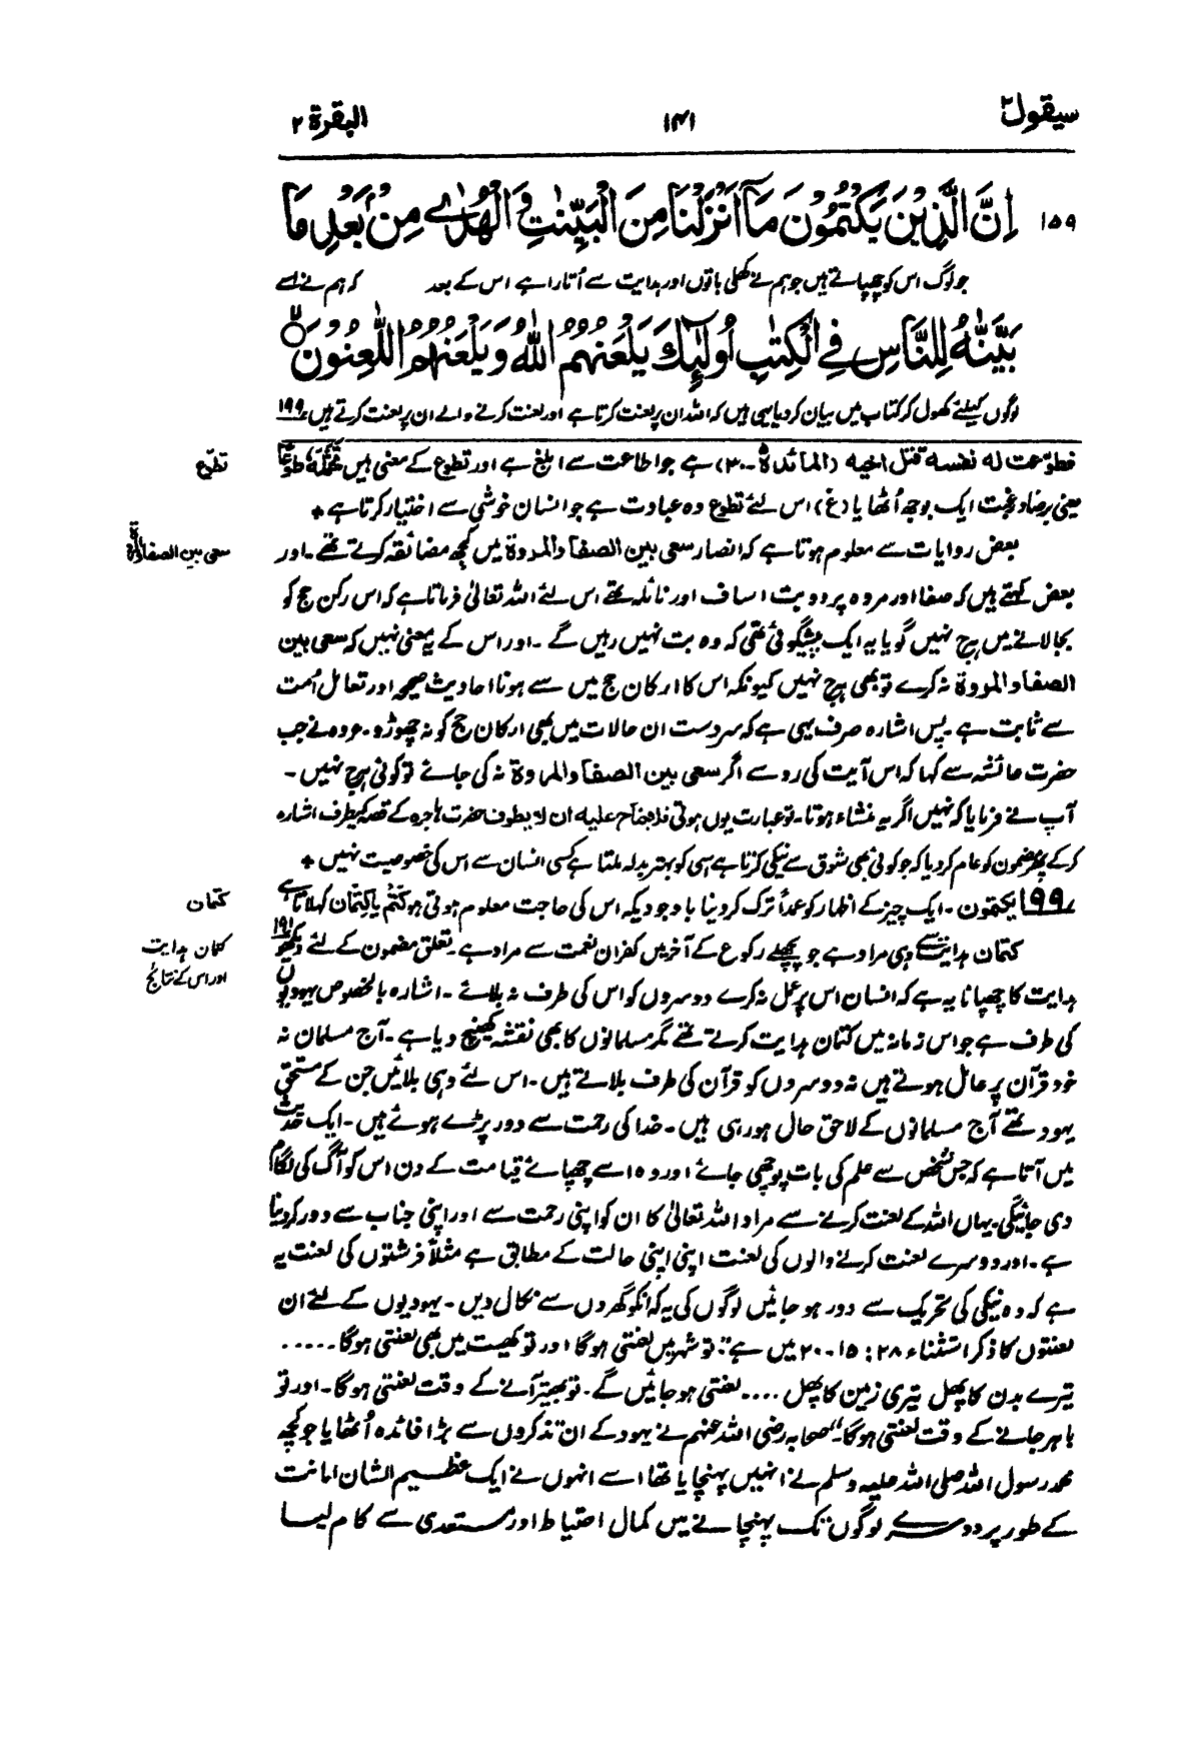 سیقول ۲
۱۴۱
البقرة ۲
۱۵۹ اِنَّ الَّذِیْنَ یَكْتُمُوْنَ مَاۤ اَنْزَلْنَا مِنَ الْبَیِّنٰتِ وَ الْهُدٰی مِنْۢ بَعْدِ مَا
جو لوگ اس کو چھپاتے ہیں جو ہم نے کھلی باتوں اور ہدایت سے اُتارا ہے اس کے بعد کہ ہم نے اسے
بَیَّنّٰهُ لِلنَّاسِ فِی الْكِتٰبِ اُولٰٓىِٕكَ یَلْعَنُهُمُ اللّٰهُ وَ یَلْعَنُهُمُ اللّٰعِنُوْنَ
لوگوں کیلئے کھول کر کتاب میں بیان کر دیا یہی ہیں کہ اللہ ان پر لعنت کرتا ہے اور لعنت کرنے والے ان پر لعنت کرتے ہیں ۱۹۹
تطوّع
فطوّعت له نفسه قتل اخیه (المائدة-۳۰) ہے جو اطاعت سے ابلغ ہے اور تطوع کے معنی ہیں تحمّله طوعًا
یعنی برضا و رغبت ایک بوجھ اُٹھایا (غ) اس لئے تطوع وہ عبادت ہے جو انسان خوشی سے اختیار کرتا ہے +
سعی بین الصفا والمروة
بعض روایات سے معلوم ہوتا ہے کہ انصار سعی بین الصفا والمروة میں کچھ مضائقہ کرتے تھے۔ اور
بعض کہتے ہیں کہ صفا اور مروہ پر دو بت اساف اور نائلہ تھے اس لئے اللہ تعالیٰ فرماتا ہے کہ اس رکن حج کو
بجا لانے میں ہرج نہیں گویا یہ ایک پیشگوئی تھی کہ وہ بت نہیں رہیں گے۔ اور اس کے یہ معنی نہیں کہ سعی بین
الصفا والمروة نہ کرے تو بھی ہرج نہیں کیونکہ اس کا ارکان حج میں سے ہونا احادیث صحیحہ اور تعامل اُمت
سے ثابت ہے۔ پس اشارہ صرف یہی ہے کہ سردست ان حالات میں بھی ارکان حج کو نہ چھوڑو۔ عروہ نے جب
حضرت عائشہ سے کہا کہ اس آیت کی رو سے اگر سعی بین الصفا والمروة نہ کی جائے تو کوئی ہرج نہیں۔
آپ نے فرمایا کہ نہیں اگر یہ منشاء ہوتا۔ تو عبارت یوں ہوتی فلاجناح علیه ان لا یطوف حضرت ہاجرہ کے قصہ کیطرف اشارہ
کر کے پھر مضمون کو عام کر دیا کہ جو کوئی بھی شوق سے نیکی کرتا ہے اسی کو بہتر بدلہ ملتا ہے کسی انسان سے اس کی خصوصیت نہیں +
کتمان
۱۹۹ یکتمون۔ ایک چیز کے اظہار کو عمداً ترک کر دینا باوجودیکہ اس کی حاجت معلوم ہوتی ہو کتم یا کتمان کہلاتا ہے
کتمان ہدایت
اور اس کے نتائج
کتمان ہدایت سے وہی مراد ہے جو پچھلے رکوع کے آخر میں کفران نعمت سے مراد ہے۔ تعلق مضمون کے لئے دیکھو ۱۹۱
ہدایت کا چھپانا یہ ہے کہ انسان اس پر عمل نہ کرے دوسروں کو اس کی طرف نہ بلائے۔ اشارہ بالخصوص یہودیوں
کی طرف ہے جو اس زمانہ میں کتمان ہدایت کرتے تھے مگر مسلمانوں کا بھی نقشہ کھینچ دیا ہے۔ آج مسلمان نہ
خود قرآن پر عامل ہوتے ہیں نہ دوسروں کو قرآن کی طرف بلاتے ہیں۔ اس لئے وہی بلائیں جن کے مستحق
یہود تھے آج مسلمانوں کے لاحق حال ہو رہی ہیں۔ خدا کی رحمت سے دور پڑے ہوئے ہیں۔ ایک حدیث
میں آتا ہے کہ جس شخص سے علم کی بات پوچھی جائے اور وہ اسے چھپائے قیامت کے دن اس کو آگ کی لگام
دی جائیگی۔ یہاں اللہ کے لعنت کرنے سے مراد اللہ تعالیٰ کا ان کو اپنی رحمت سے اور اپنی جناب سے دور کر دینا
ہے۔ اور دوسرے لعنت کرنے والوں کی لعنت اپنی اپنی حالت کے مطابق ہے مثلاً فرشتوں کی لعنت یہ
ہے کہ وہ نیکی کی تحریک سے دور ہو جائیں لوگوں کی یہ کہ انکو گھروں سے نکال دیں۔ یہودیوں کے لئے ان
لعنتوں کا ذکر استثناء ۲۸: ۱۵-۲۰ میں ہے "تو شہر میں لعنتی ہو گا اور تو کھیت میں بھی لعنتی ہو گا ......
تیرے بدن کا پھل تیری زمین کا پھل .... لعنتی ہو جائیں گے۔ تو بھیتر آنے کے وقت لعنتی ہو گا۔ اور تو
باہر جانے کے وقت لعنتی ہو گا۔" صحابہ رضی اللہ عنہم نے یہود کے ان تذکروں سے بڑا فائدہ اُٹھایا جو کچھ
محمد رسول اللہ صلی اللہ علیہ وسلم نے انہیں پہنچایا تھا اسے انہوں نے ایک عظیم الشان امانت
کے طور پر دوسرے لوگوں تک پہنچانے میں کمال احتیاط اور مستعدی سے کام لیا